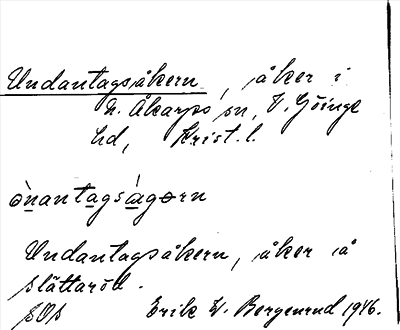 Undantagsåkern, åker i
N. Åkarps sn, V. Göinge
hd, Krist. l.
ònantagsàgɘrn
Undantagsåkern, åker å
Slättaröd.
SOS Erik W. Bergenrud 1946.